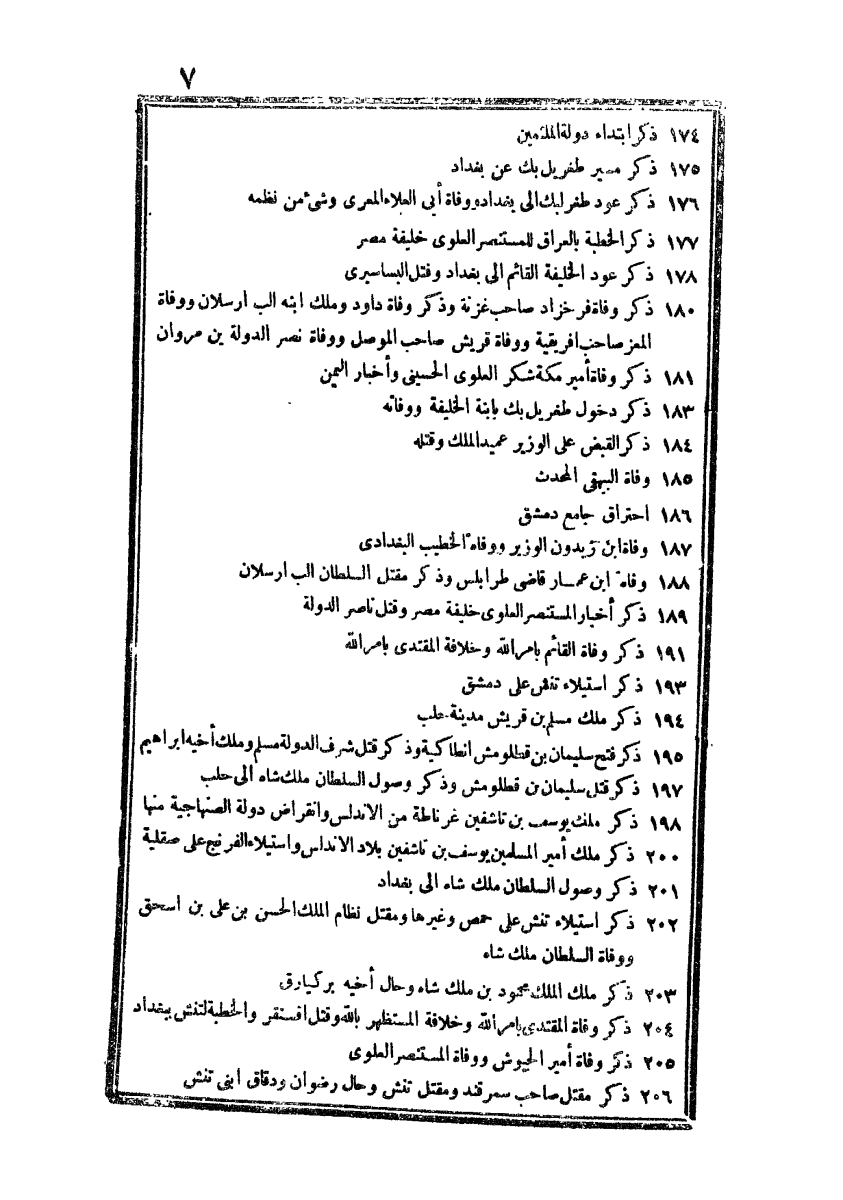 ٧
١٧٤ ذكر ابتداء دولة الملثمين
١٧٥ ذكر مسير طغريل بك عن بغداد
١٧٦ ذكر عود طغرلبك الى بغداد ووفاة أبى العلاء المعرى وشئ من نظمه
١٧٧ ذكر الخطبة بالعراق للمستنصر العلوى خليفة مصر
١٧٨ ذكر عود الخليفة القائم الى بغداد وقتل البساسيرى
١٨٠ ذكر وفاة فرخزاد صاحب غزنة وذكر وفاة داود وملك ابنه الب ارسلان ووفاة
المعز صاحب افريقية ووفاة قريش صاحب الموصل ووفاة نصر الدولة بن مروان
١٨١ ذكر وفاة أمير مكة شكر العلوى الحسينى وأخبار اليمن
١٨٣ ذكر دخول طغريل بك بابنة الخليفة ووفاته
١٨٤ ذكر القبض على الوزير عميد الملك وقتله
١٨٥ وفاة البيهقى المحدث
١٨٦ احتراق جامع دمشق
١٨٧ وفاة ابن زيدون الوزير ووفاة الخطيب البغدادى
١٨٨ وفاة ابن عمار قاضى طرابلس وذكر مقتل السلطان الب ارسلان
١٨٩ ذكر أخبار المستنصر العلوى خليفة مصر وقتل ناصر الدولة
١٩١ ذكر وفاة القائم بامر الله وخلافة المقتدى بامر الله
١٩٣ ذكر استيلاء تتش على دمشق
١٩٤ ذكر ملك مسلم بن قريش مدينة حلب
١٩٥ ذكر فتح سليمان بن قطلومش انطاكية وذكر قتل شرف الدولة مسلم وملك أخيه ابراهيم
١٩٧ ذكر قتل سليمان بن قطلومش وذكر وصول السلطان ملك شاه الى حلب
١٩٨ ذكر ملك يوسف بن تاشفين غرناطة من الاندلس وانقراض دولة الصنهاجية منها
٢٠٠ ذكر ملك أمير المسلمين يوسف بن تاشفين بلاد الاندلس واستيلاء الفرنج على صقلية
٢٠١ ذكر وصول السلطان ملك شاه الى بغداد
٢٠٢ ذكر استيلاء تتش على حمص وغيرها ومقتل نظام الملك الحسن بن على بن اسحق
ووفاة السلطان ملك شاه
٢٠٣ ذكر ملك الملك محمود بن ملك شاه وحال أخيه بركيارق
٢٠٤ ذكر وفاة المقتدى بامر الله وخلافة المستظهر بالله وقتل اقسنقر والخطبة لتتش ببغداد
٢٠٥ ذكر وفاة أمير الجيوش ووفاة المستنصر العلوى
٢٠٦ ذكر مقتل صاحب سمرقند ومقتل تتش وحال رضوان ودقاق ابنى تتش